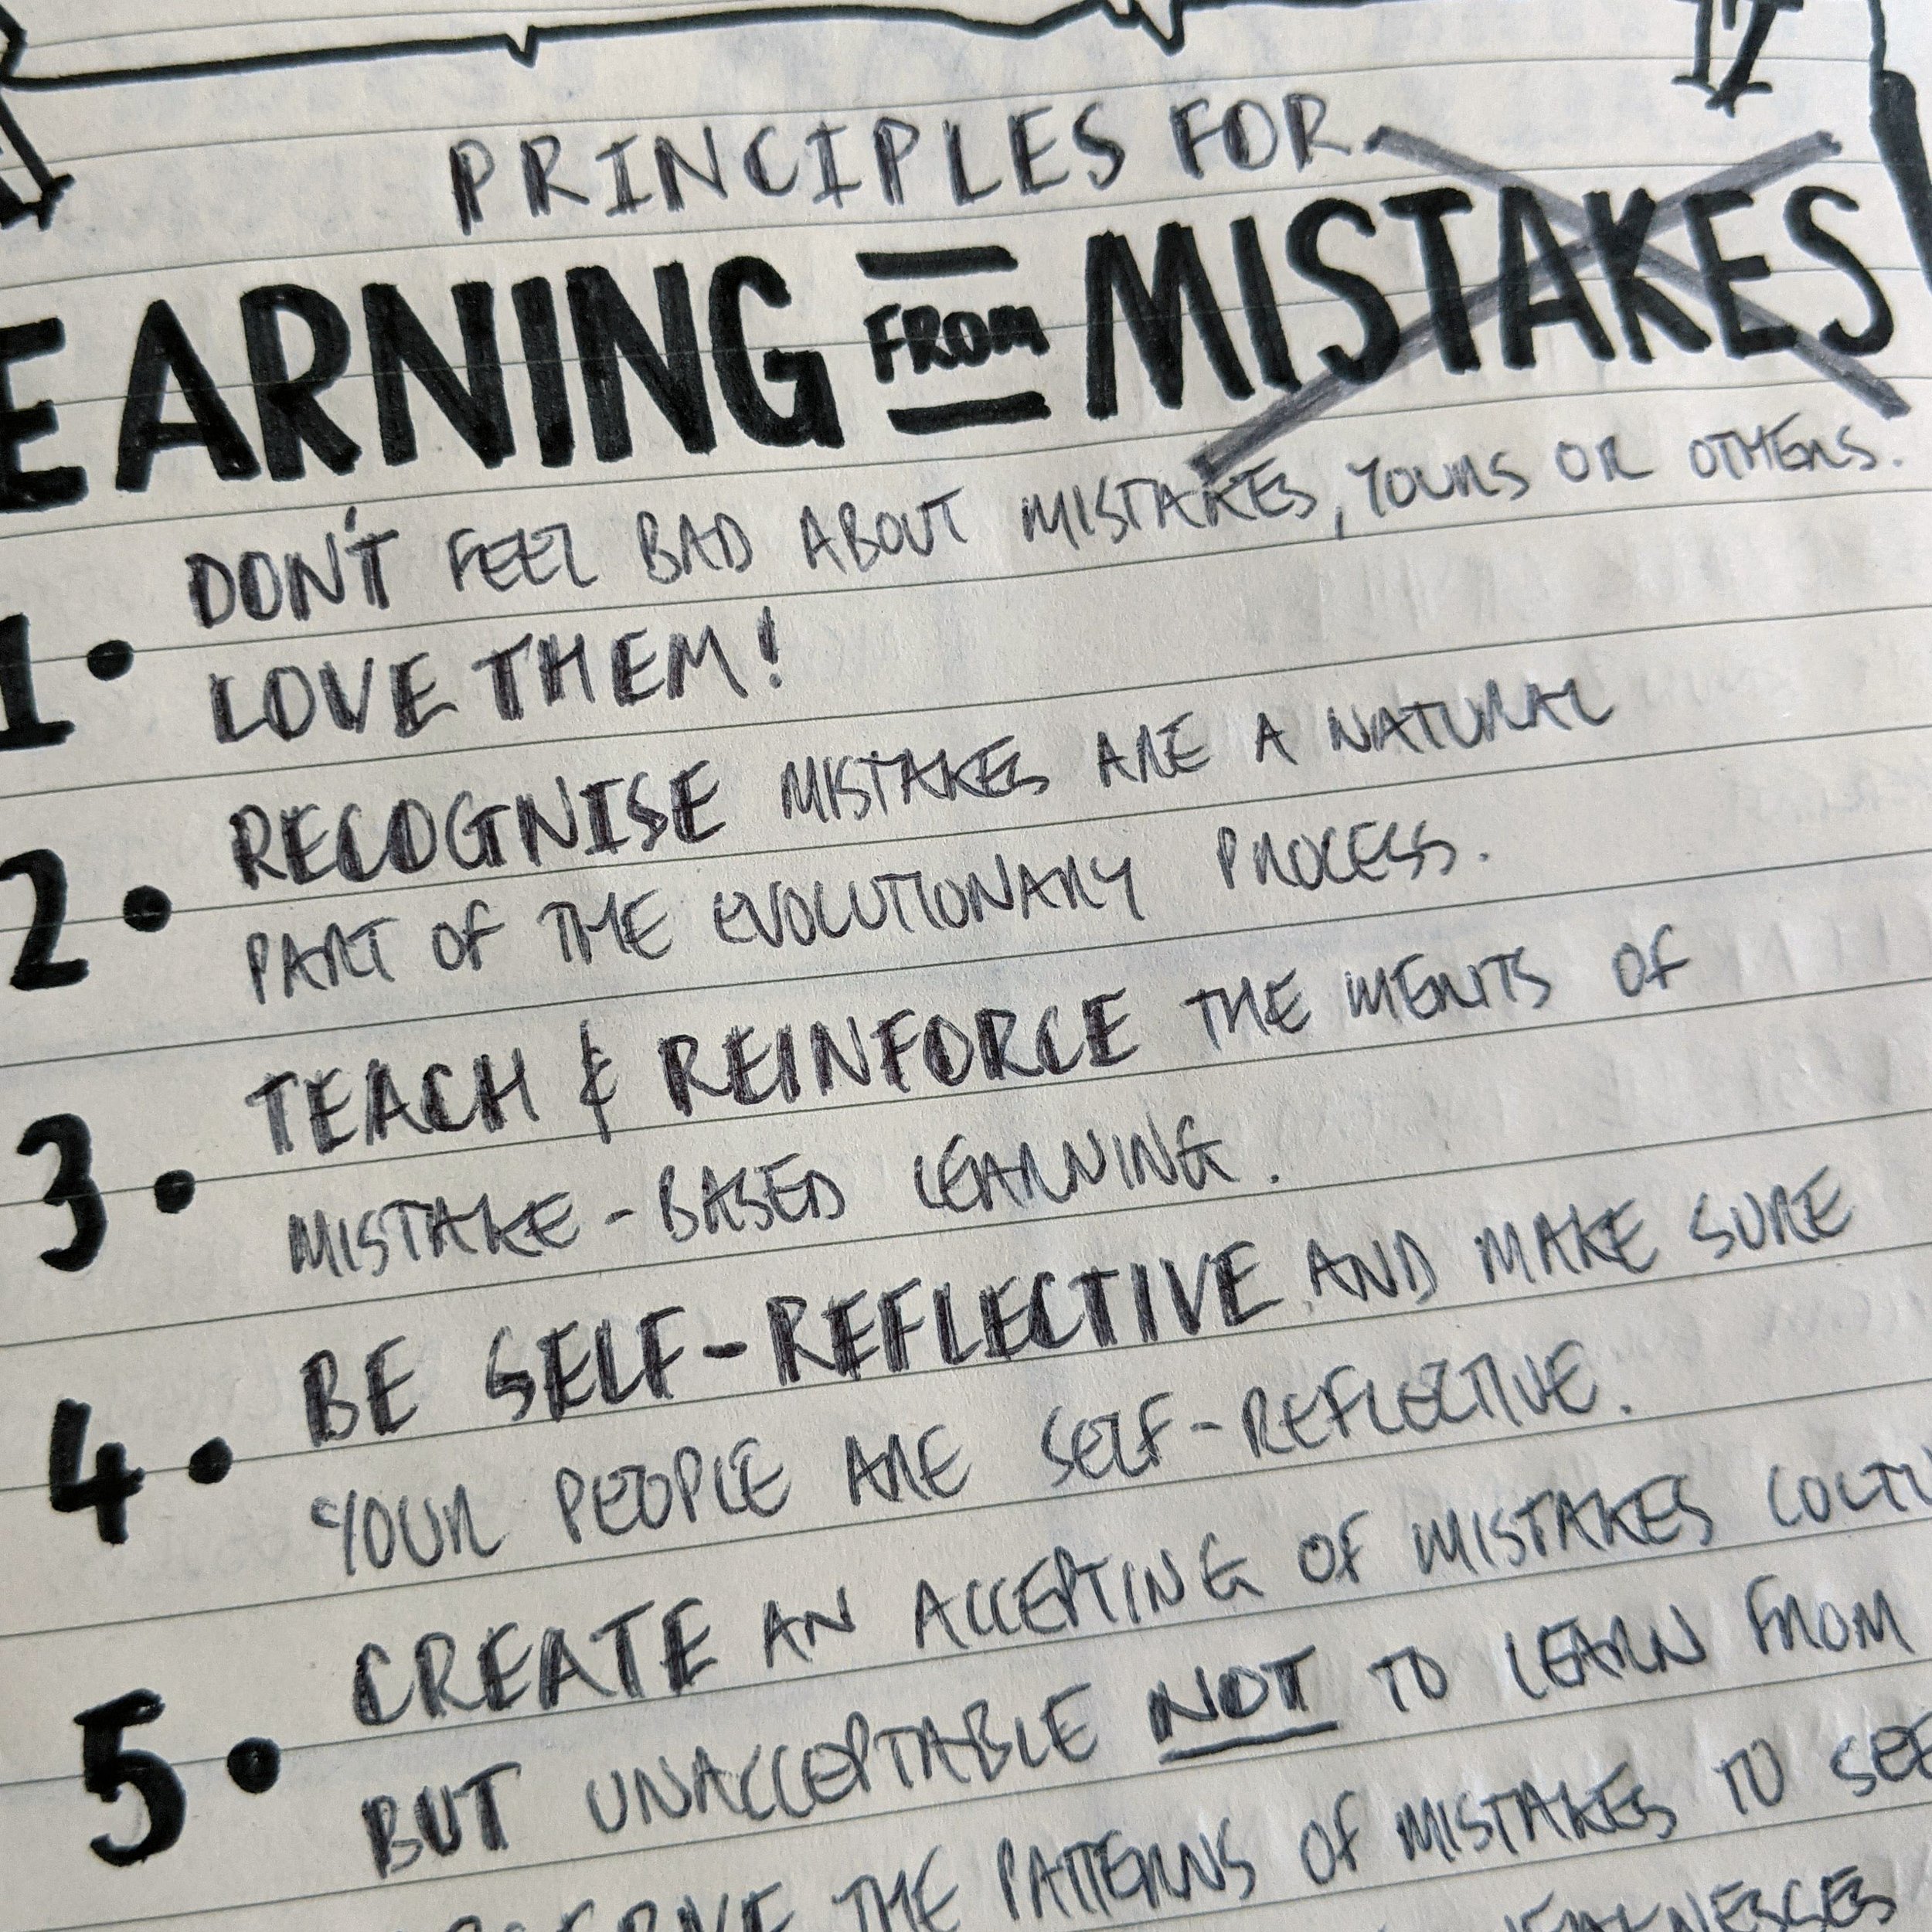 17
PRINCIPLES FOR
EARNING FROM MISTAKES
1. DON'T FEEL BAD ABOUT MISTAKES, YOURS OR OTHERS.
LOVE THEM!
2. RECOGNISE MISTAKES ARE A NATURAL
PART OF THE EVOLUTIONARY PROCESS.
3. TEACH & REINFORCE THE MERITS OF
MISTAKE-BASED LEARNING.
4. BE SELF-REFLECTIVE AND MAKE SURE
YOUR PEOPLE ARE SELF-REFLECTIVE.
5. CREATE AN ACCEPTING OF MISTAKES CULTU
BUT UNACCEPTABLE NOT TO LEARN FROM
THE PATTERNS OF MISTAKES TO SEE